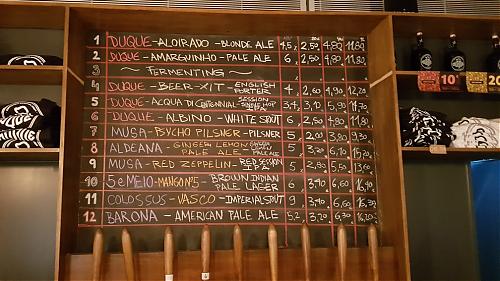 1 DUQUE-ALOIRADO - BLONDE ALE 4,5 2,50 4,80 11,80
2 DUQUE-AMARGUINHO-PALE ALE 6 2,50 4,80 11,80
3 ~ FERMENTING ~
4 DUQUE-BEER-XIT-ENGLISH PORTER 4 2,60 4,90 12,20
5 DUQUE-ACQUA DI CENTENNIAL-SESSION
6 DUQUE-ALBINO-WHITE STOUT 6 2,50 4,80 11,80
7 MUSA-PSYCHO PILSNER-PILSNER 5 2,00 3,80 9,30
8 ALDEANA-GINGER LEMON PALE ALE
9 MUSA-RED ZEPPELIN-RED SESSION IPA
10 5 e MEIO-MANGON'5-BROWN INDIAN PALE LAGER 6 3,40 6,60 16,40
11 COLOSSUS-VASCO-IMPERIAL STOUT 9 3,40 6,60
12 BARONA-AMERICAN PALE ALE 5,2 3,20 6,30 16,20
10
20